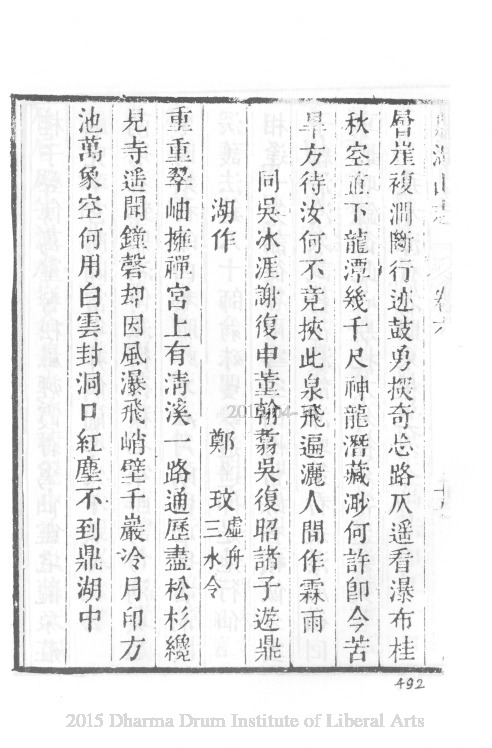 層崖複澗斷行迹鼓勇探奇忘路仄遥看瀑布桂
秋空直下龍潭幾千尺神龍潛藏渺何許卽今苦
旱方待汝何不竟挾此泉飛遍灑人間作霖雨
同吳冰涯謝復中董翰翥吳復昭諸子遊鼎
湖作
鄭玟虛舟三水令
重重翠岫擁禪宮上有淸溪一路通歷盡松杉纔
見寺遥聞鐘磬却因風瀑飛峭壁千巖冷月印方
池萬象空何用白雲封洞口紅塵不到鼎湖中
492
2015 Dharma Drum Institute of Liberal Arts